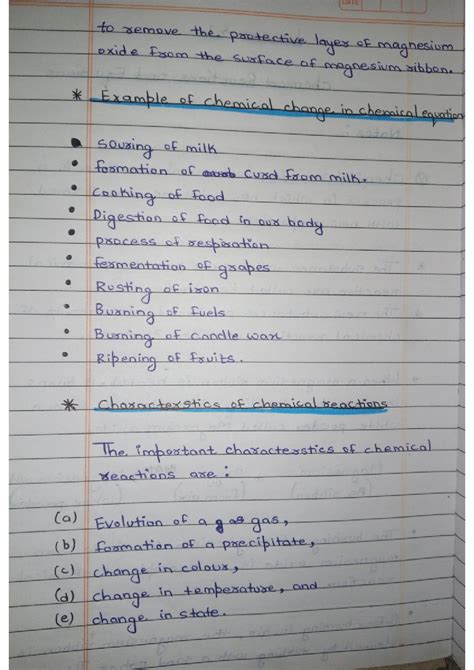 DATE
to remove the protective layer of magnesium
oxide from the surface of magnesium ribbon.
* Example of chemical change in chemical equation
• souring of milk
• formation of curd from milk.
• Cooking of food
• Digestion of food in our body
• process of respiration
• fermentation of grapes
• Rusting of iron
• Burning of fuels
• Burning of candle wax
• Ripening of fruits.
* Characterstics of chemical reactions
The important characterstics of chemical
reactions are :
(a) Evolution of a gas,
(b) formation of a precipitate,
(c) change in colour,
(d) change in temperature, and
(e) change in state.